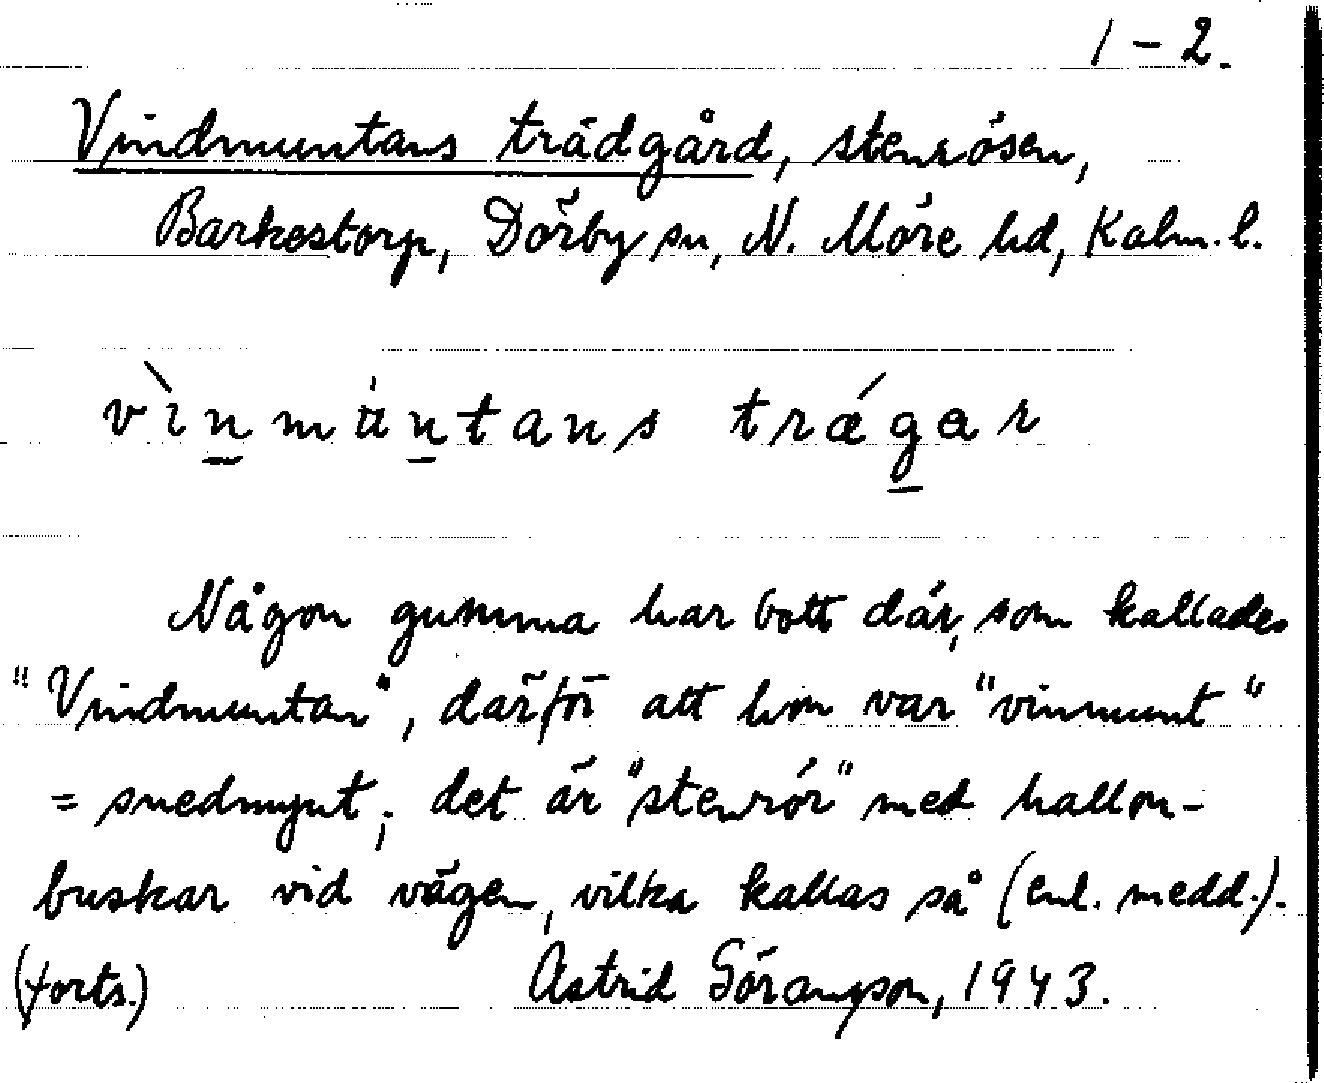 1-2.
Vindmuntans trädgård, stenrösen,
Barkestorp, Dörby sn, N. Möre hd, Kalm. l.
vìnmuntans trǽgar
Någon gumma har bott där, som kallades
"Vindmuntan", därför att hon var "vinmunt"
= snedmynt; det är "stenrör" med hallon-
buskar vid vägen, vilka kallas så (enl. medd.).
(forts.) Astrid Göransson, 1943.